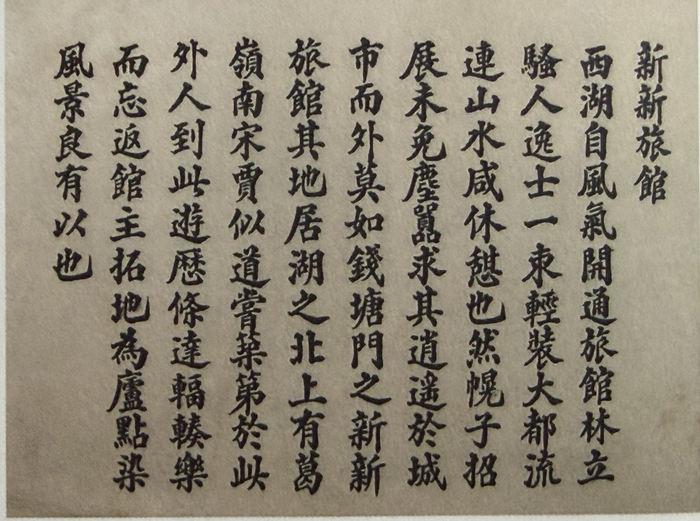 新新旅館
西湖自風氣開通旅館林立
騷人逸士一束輕裝大都流
連山水咸休憇也然幌子招
展未免塵囂求其逍遥於城
市而外莫如錢塘門之新新
旅館其地居湖之北上有葛
嶺南宋賈似道嘗築第於此
外人到此遊歷條達輻輳樂
而忘返館主拓地為廬點染
風景良有以也